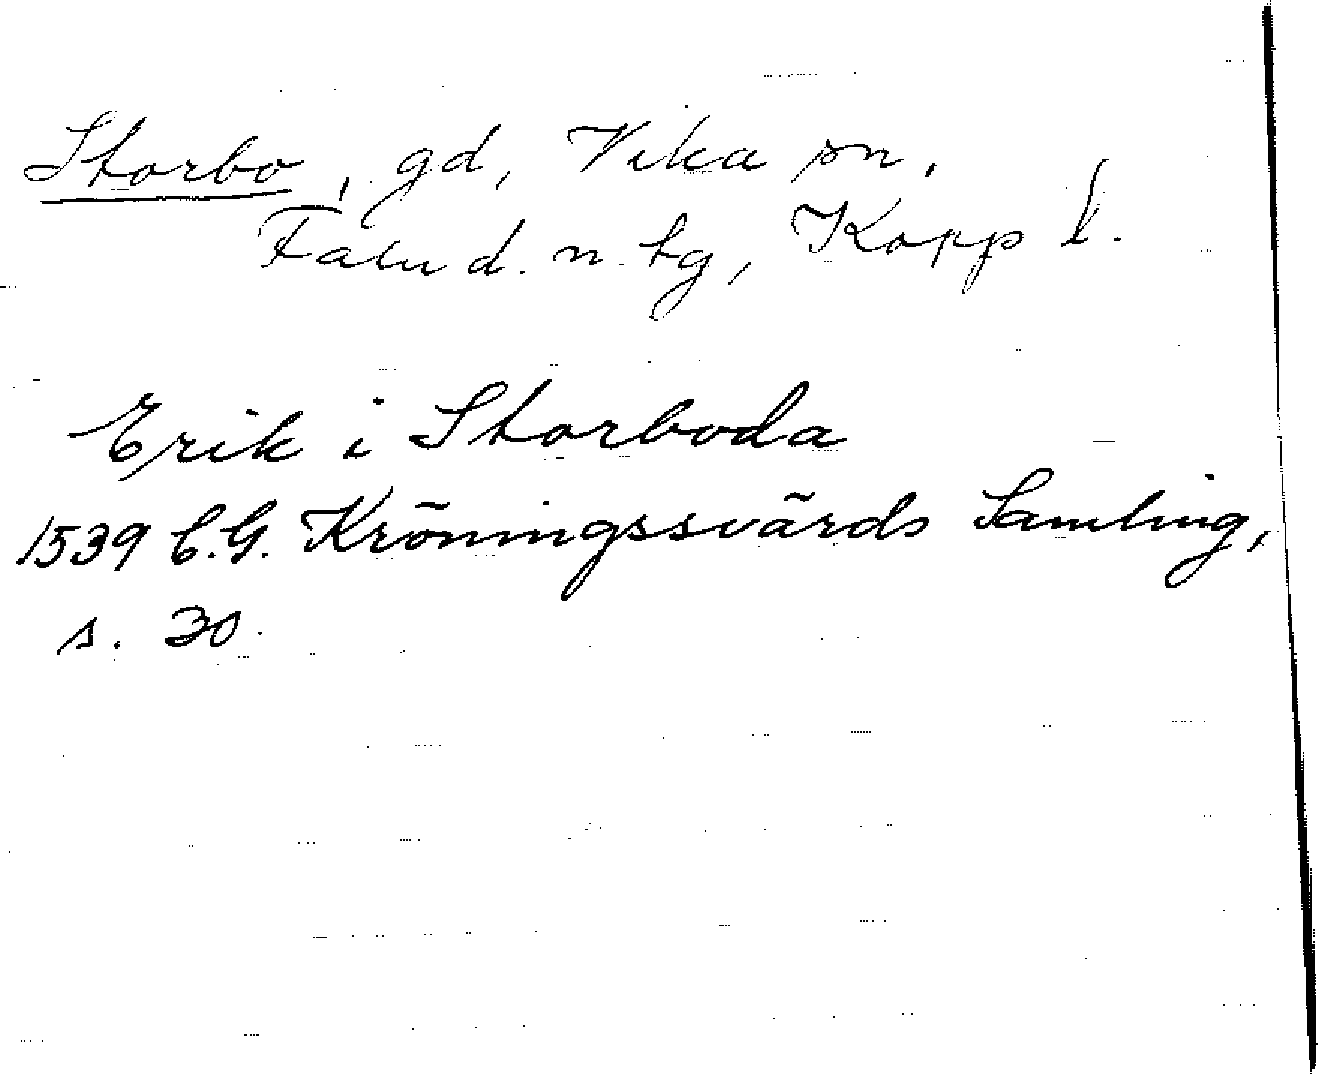 Storbo, gd, Vika sn,
Falu d. n. tg, Kopp l.
Erik i Storboda
1539 C.G. Kröningssvärds Samling,
s. 30.